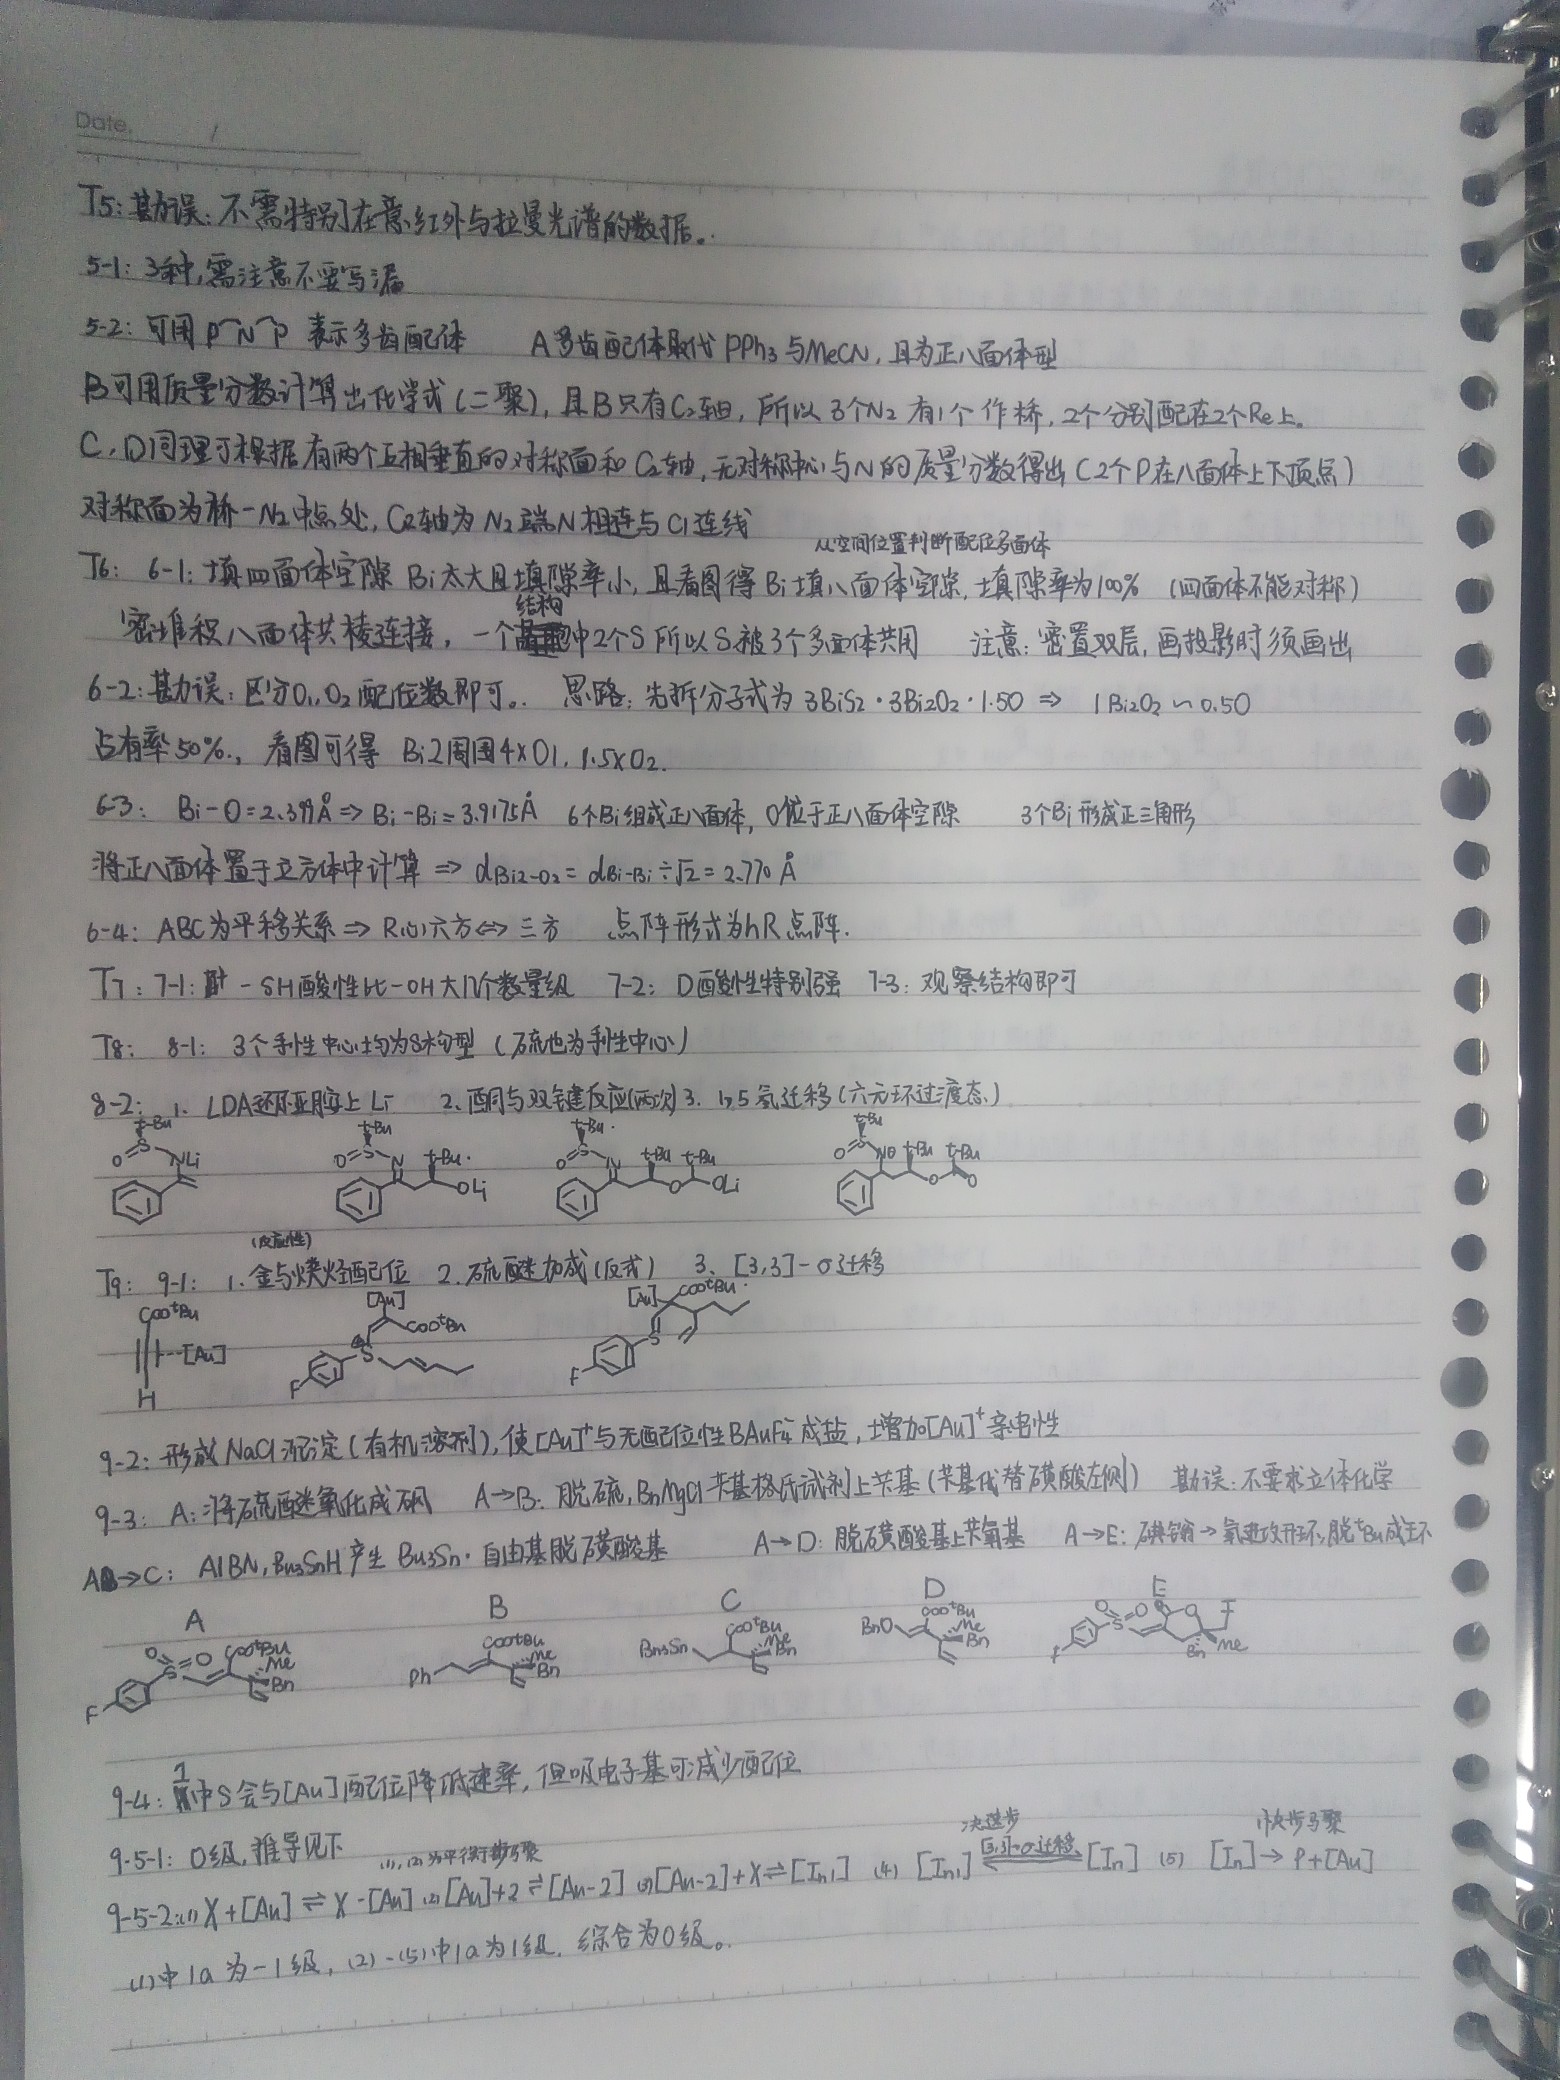 Date. /
T5: 勘误: 不需特别在意红外与拉曼光谱的数据。
5-1: 3种,需注意不要写漏
5-2: 可用 P⌒N⌒P 表示多齿配体 A多齿配体取代 PPh₃ 与MeCN, 且为正八面体型
B可用质量分数计算出化学式(二聚), 且B只有C₂轴, 所以3个N₂有1个作桥, 2个分别配在2个Re上。
C, D同理可根据有两个互相垂直的对称面和C₂轴, 无对称中心与N的质量分数得出(2个P在八面体上下顶点)
对称面为桥-N₂中点处, C₂轴为N₂端N相连与Cl连线
从空间位置判断配位多面体
T6: 6-1: 填四面体空隙 Bi太大且填隙率小, 且看图得Bi填八面体空隙, 填隙率为100% (四面体不能对称)
密堆积八面体共棱连接, 一个结构中2个S 所以S被3个多面体共用 注意: 密置双层, 画投影时须画出
6-2: 勘误: 区分O₁, O₂配位数即可。 思路: 先拆分子式为 3BiS₂·3Bi₂O₂·1.5O ⇒ 1Bi₂O₂ ~ 0.5O
占有率50%., 看图可得 Bi2周围4×O1, 1.5×O2.
6-3: Bi-O=2.399Å ⇒ Bi-Bi=3.9175Å 6个Bi组成正八面体, O位于正八面体空隙 3个Bi形成正三角形
将正八面体置于立方体中计算 ⇒ dBi2-O2 = dBi-Bi ÷ √2 = 2.770 Å
6-4: ABC为平移关系 ⇒ R心六方 ⇔ 三方 点阵形式为hR点阵.
T7: 7-1: -SH酸性比-OH大几个数量级 7-2: D酸性特别强 7-3: 观察结构即可
T8: 8-1: 3个手性中心均为S构型 (硫也为手性中心)
8-2: 1. LDA 亚胺上Li 2. 酮与双键反应(两次) 3. 1,5氢迁移(六元环过渡态)
t-Bu S O NLi
t-Bu O S N t-Bu. OLi
t-Bu. O S N t-Bu t-Bu O OLi
t-Bu O S N⊖ t-Bu t-Bu O O
(反应性)
T9: 9-1: 1. 金与炔烃配位 2. 硫醚加成(反式) 3. [3,3]-σ迁移
COOᵗBu [Au] H
[Au] COOᵗBu ⊕ S F
[Au] COOᵗBu S F
9-2: 形成NaCl沉淀(有机溶剂), 使[Au]⁺与无配位性BArF₄⁻成盐, 增加[Au]⁺亲电性
9-3: A: 将硫醚氧化成砜 A→B: 脱硫, BnMgCl苄基格氏试剂上苄基(苄基代替磺酸左侧) 勘误: 不要求立体化学
A→C: AIBN, Bu₃SnH产生 Bu₃Sn· 自由基脱磺酸基 A→D: 脱磺酸基上苄氧基 A→E: 碘鎓→氧进攻开环, 脱ᵗBu成环
A B C D E
O O S COOᵗBu Me Bn F
Ph COOᵗBu Me Bn
Bn₃Sn COOᵗBu Me Bn
BnO COOᵗBu Me Bn
O O S O O I F Bn Me
9-4: 1中S会与[Au]配位降低速率, 但吸电子基可减少配位
9-5-1: 0级, 推导见下
(1), (2)为平衡步骤 决速步 快步骤
9-5-2: (1) X+[Au] ⇌ X-[Au] (2) [Au]+2 ⇌ [Au-2] (3) [Au-2]+X ⇌ [In₁] (4) [In₁] [3,3]-σ迁移 ⇌ [In] (5) [In] → P+[Au]
(1)中1a为-1级, (2)-(5)中1a为1级, 综合为0级。